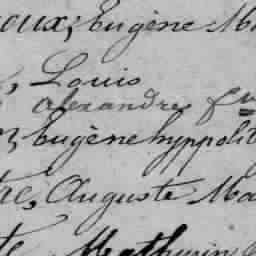 oux, Eugène Ma
, Louis
alexandre f
n, Eugène hyppolit
re, Auguste Ma
te Mathurin